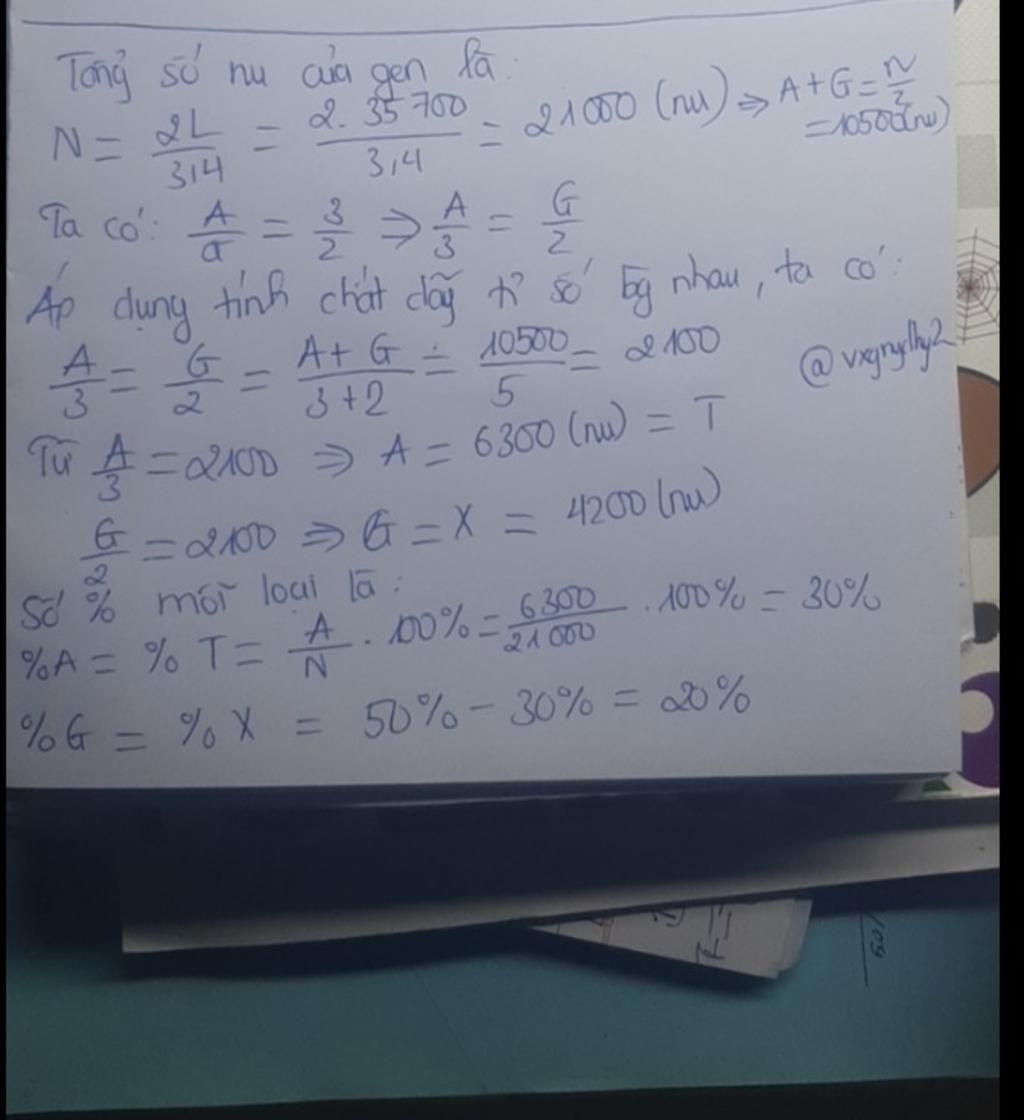 Tổng số nu của gen là:
N = 2L/3,4 = 2.35700/3,4 = 21000 (nu) ⇒ A + G = N/2
= 10500 (nu)
Ta có: A/G = 3/2 ⇒ A/3 = G/2
Áp dụng tính chất dãy tỉ số bg nhau, ta có:
A/3 = G/2 = A + G/3 + 2 = 10500/5 = 2100
Từ A/3 = 2100 ⇒ A = 6300 (nu) = T
G/2 = 2100 ⇒ G = X = 4200 (nu)
Số % mỗi loại là:
%A = % T = A/N . 100% = 6300/21000 . 100% = 30%
%G = % X = 50% - 30% = 20%